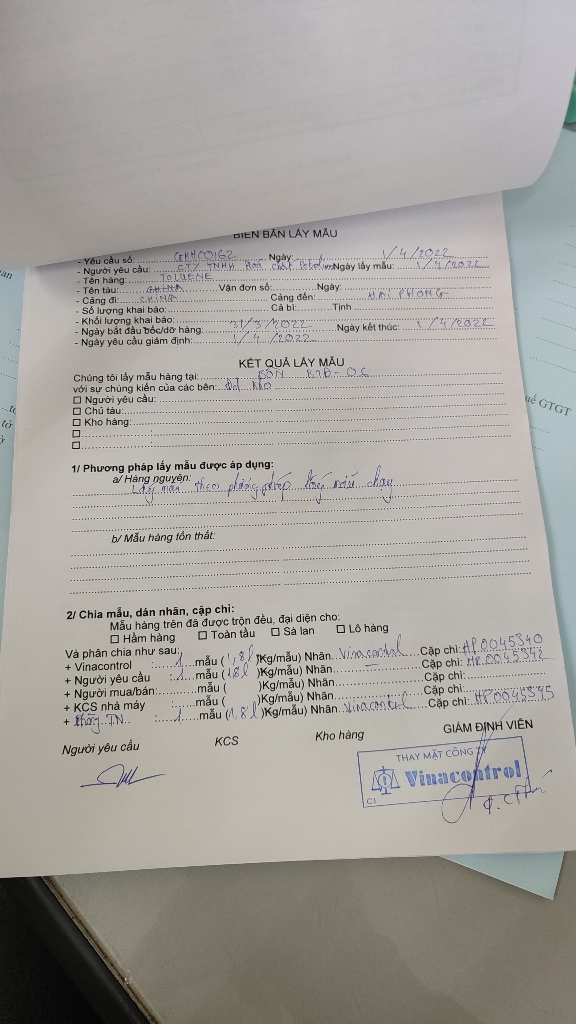 BIÊN BẢN LẤY MẪU
- Yêu cầu số: Ngày: 1/4/2022
- Người yêu cầu: CTY TNHH Hoá chất Ngày lấy mẫu: 1/4/2022
- Tên hàng: TOLUENE
- Tên tàu: CHINA Vận đơn số: Ngày:
- Cảng đi: CHINA Cảng đến: HAI PHONG
- Số lượng khai báo: Cả bì: Tịnh
- Khối lượng khai báo:
- Ngày bắt đầu bốc/dỡ hàng: 31/3/2022 Ngày kết thúc: 1/4/2022
- Ngày yêu cầu giám định: 1/4/2022
KẾT QUẢ LẤY MẪU
Chúng tôi lấy mẫu hàng tại: BỒN
với sự chứng kiến của các bên:
☐ Người yêu cầu:
☐ Chủ tàu:
☐ Kho hàng:
☐ :
☐
1/ Phương pháp lấy mẫu được áp dụng:
a/ Hàng nguyên:
Lấy mẫu theo phương pháp lấy mẫu chạy
b/ Mẫu hàng tổn thất:
2/ Chia mẫu, dán nhãn, cặp chì:
Mẫu hàng trên đã được trộn đều, đại diện cho:
☐ Hầm hàng ☐ Toàn tầu ☐ Sà lan ☐ Lô hàng
Và phân chia như sau:
+ Vinacontrol : 1 mẫu (1,8l)Kg/mẫu) Nhãn Vinacontrol Cặp chì: HP0045340
+ Người yêu cầu : 1 mẫu (1,8l)Kg/mẫu) Nhãn — Cặp chì: HP0045342
+ Người mua/bán: mẫu ( )Kg/mẫu) Nhãn Cặp chì:
+ KCS nhà máy : mẫu ( )Kg/mẫu) Nhãn Cặp chì:
+ Phòng TN : 1 mẫu (1,8l)Kg/mẫu) Nhãn Vinacontrol Cặp chì: HP0045345
Người yêu cầu KCS Kho hàng GIÁM ĐỊNH VIÊN
THAY MẶT CÔNG TY
Vinacontrol
C1
uế GTGT